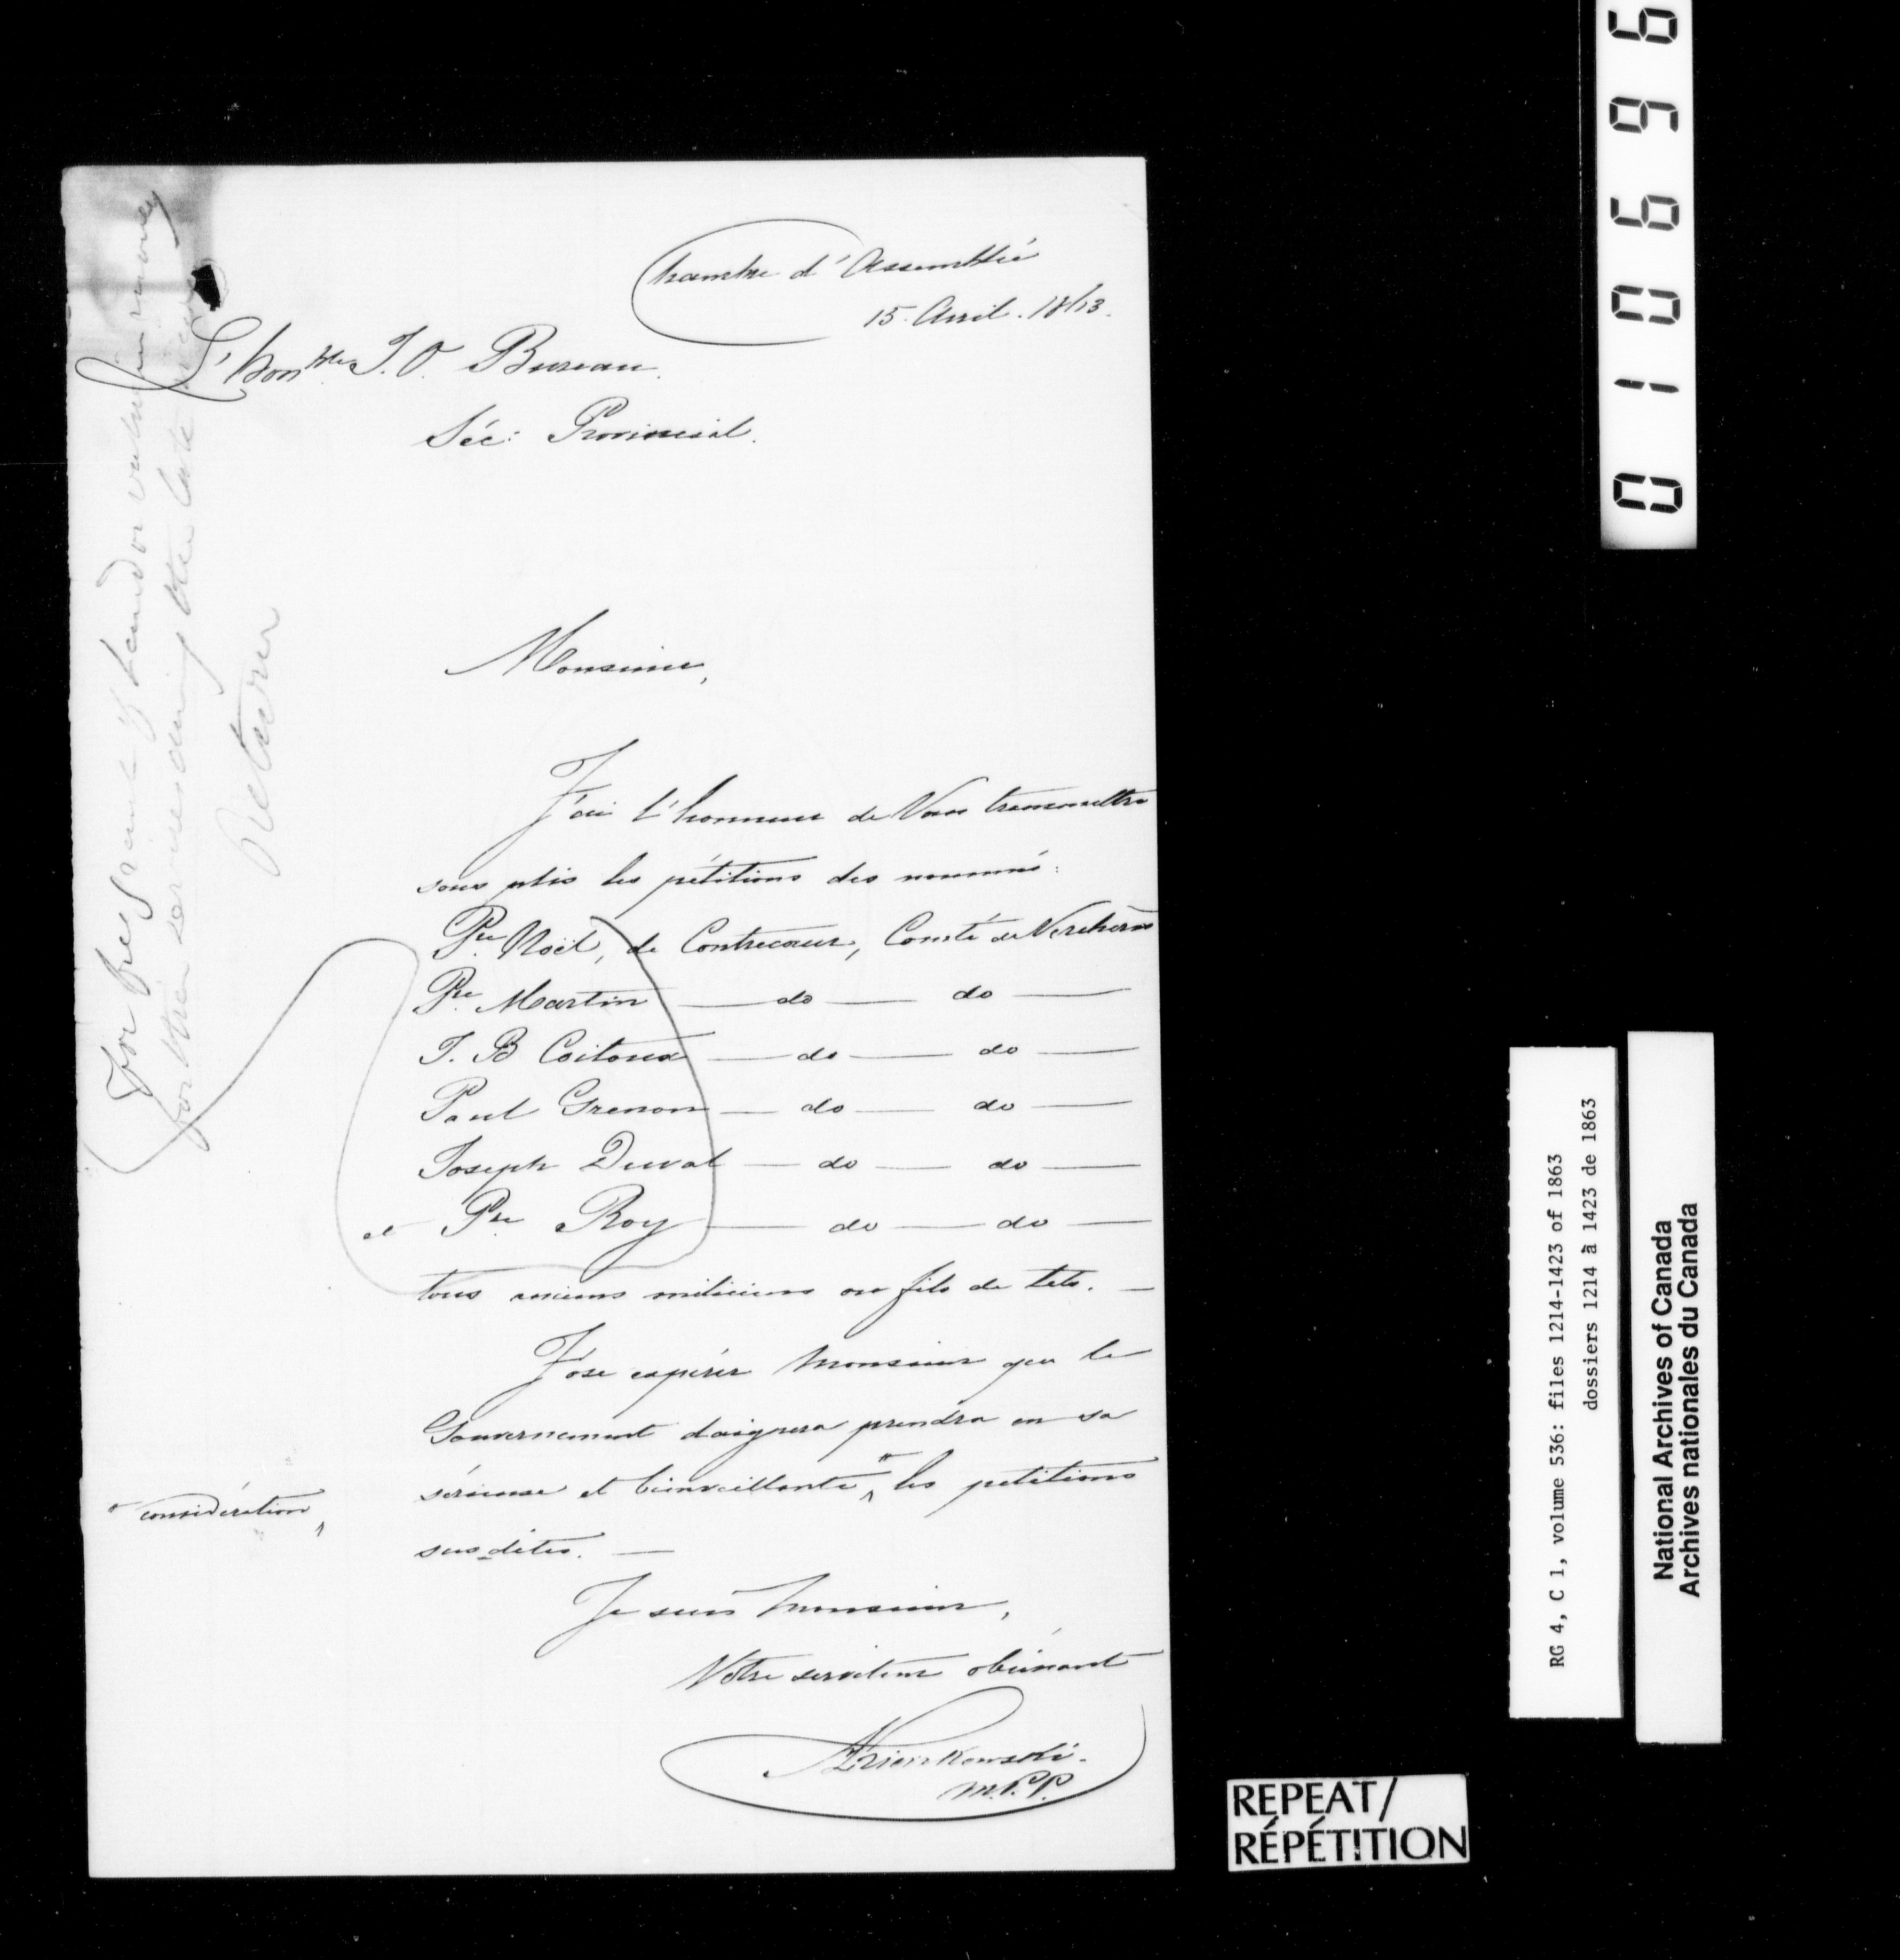 Chambre d'Assemblée
15. Avril. 1863.
L'honble J. O. Bureau.
Séc: Provincial.
Monsieur,
J'ai l'honneur de Vous transmettre
sous plis les pétitions des nommés:
Pre Noël, de Contrecoeur, Comté de Verchères
Pre Martin — do — do —
J. B Coiteux — do — do —
Paul Grenon — do — do —
Joseph Duval — do — do —
et Pre Roy — do — do —
tous anciens miliciens ou fils de tels. —
J'ose espérer Monsieur que le
Gouvernement daignera prendre en sa
sérieuse et bienveillante " les petitions
" considération
susdites. —
Je suis Monsieur,
Votre serviteur obéissant
AKierzkowski.
M.P.P.
For free grants of land or value in money
for their services during the late war
Return
010696
RG 4, C 1, volume 536: files 1214-1423 of 1863
dossiers 1214 à 1423 de 1863
National Archives of Canada
Archives nationales du Canada
REPEAT/
RÉPÉTITION